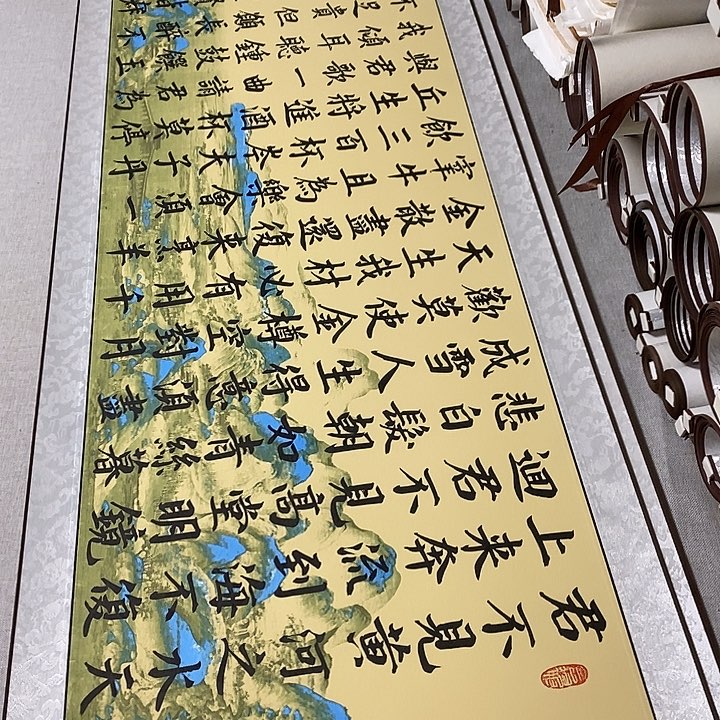 君不見黃河之水天
上来奔流到海不復
迴君不見高堂明鏡
悲白髮朝如青絲暮
成雪人生得意須盡
歡莫使金樽空對月
天生我材必有用千
金散盡還復来烹羊
宰牛且為樂會須一
飲三百杯岑夫子丹
丘生將進酒杯莫停
與君歌一曲請君為
我傾耳聽鍾鼓饌玉
不足貴但願長醉不